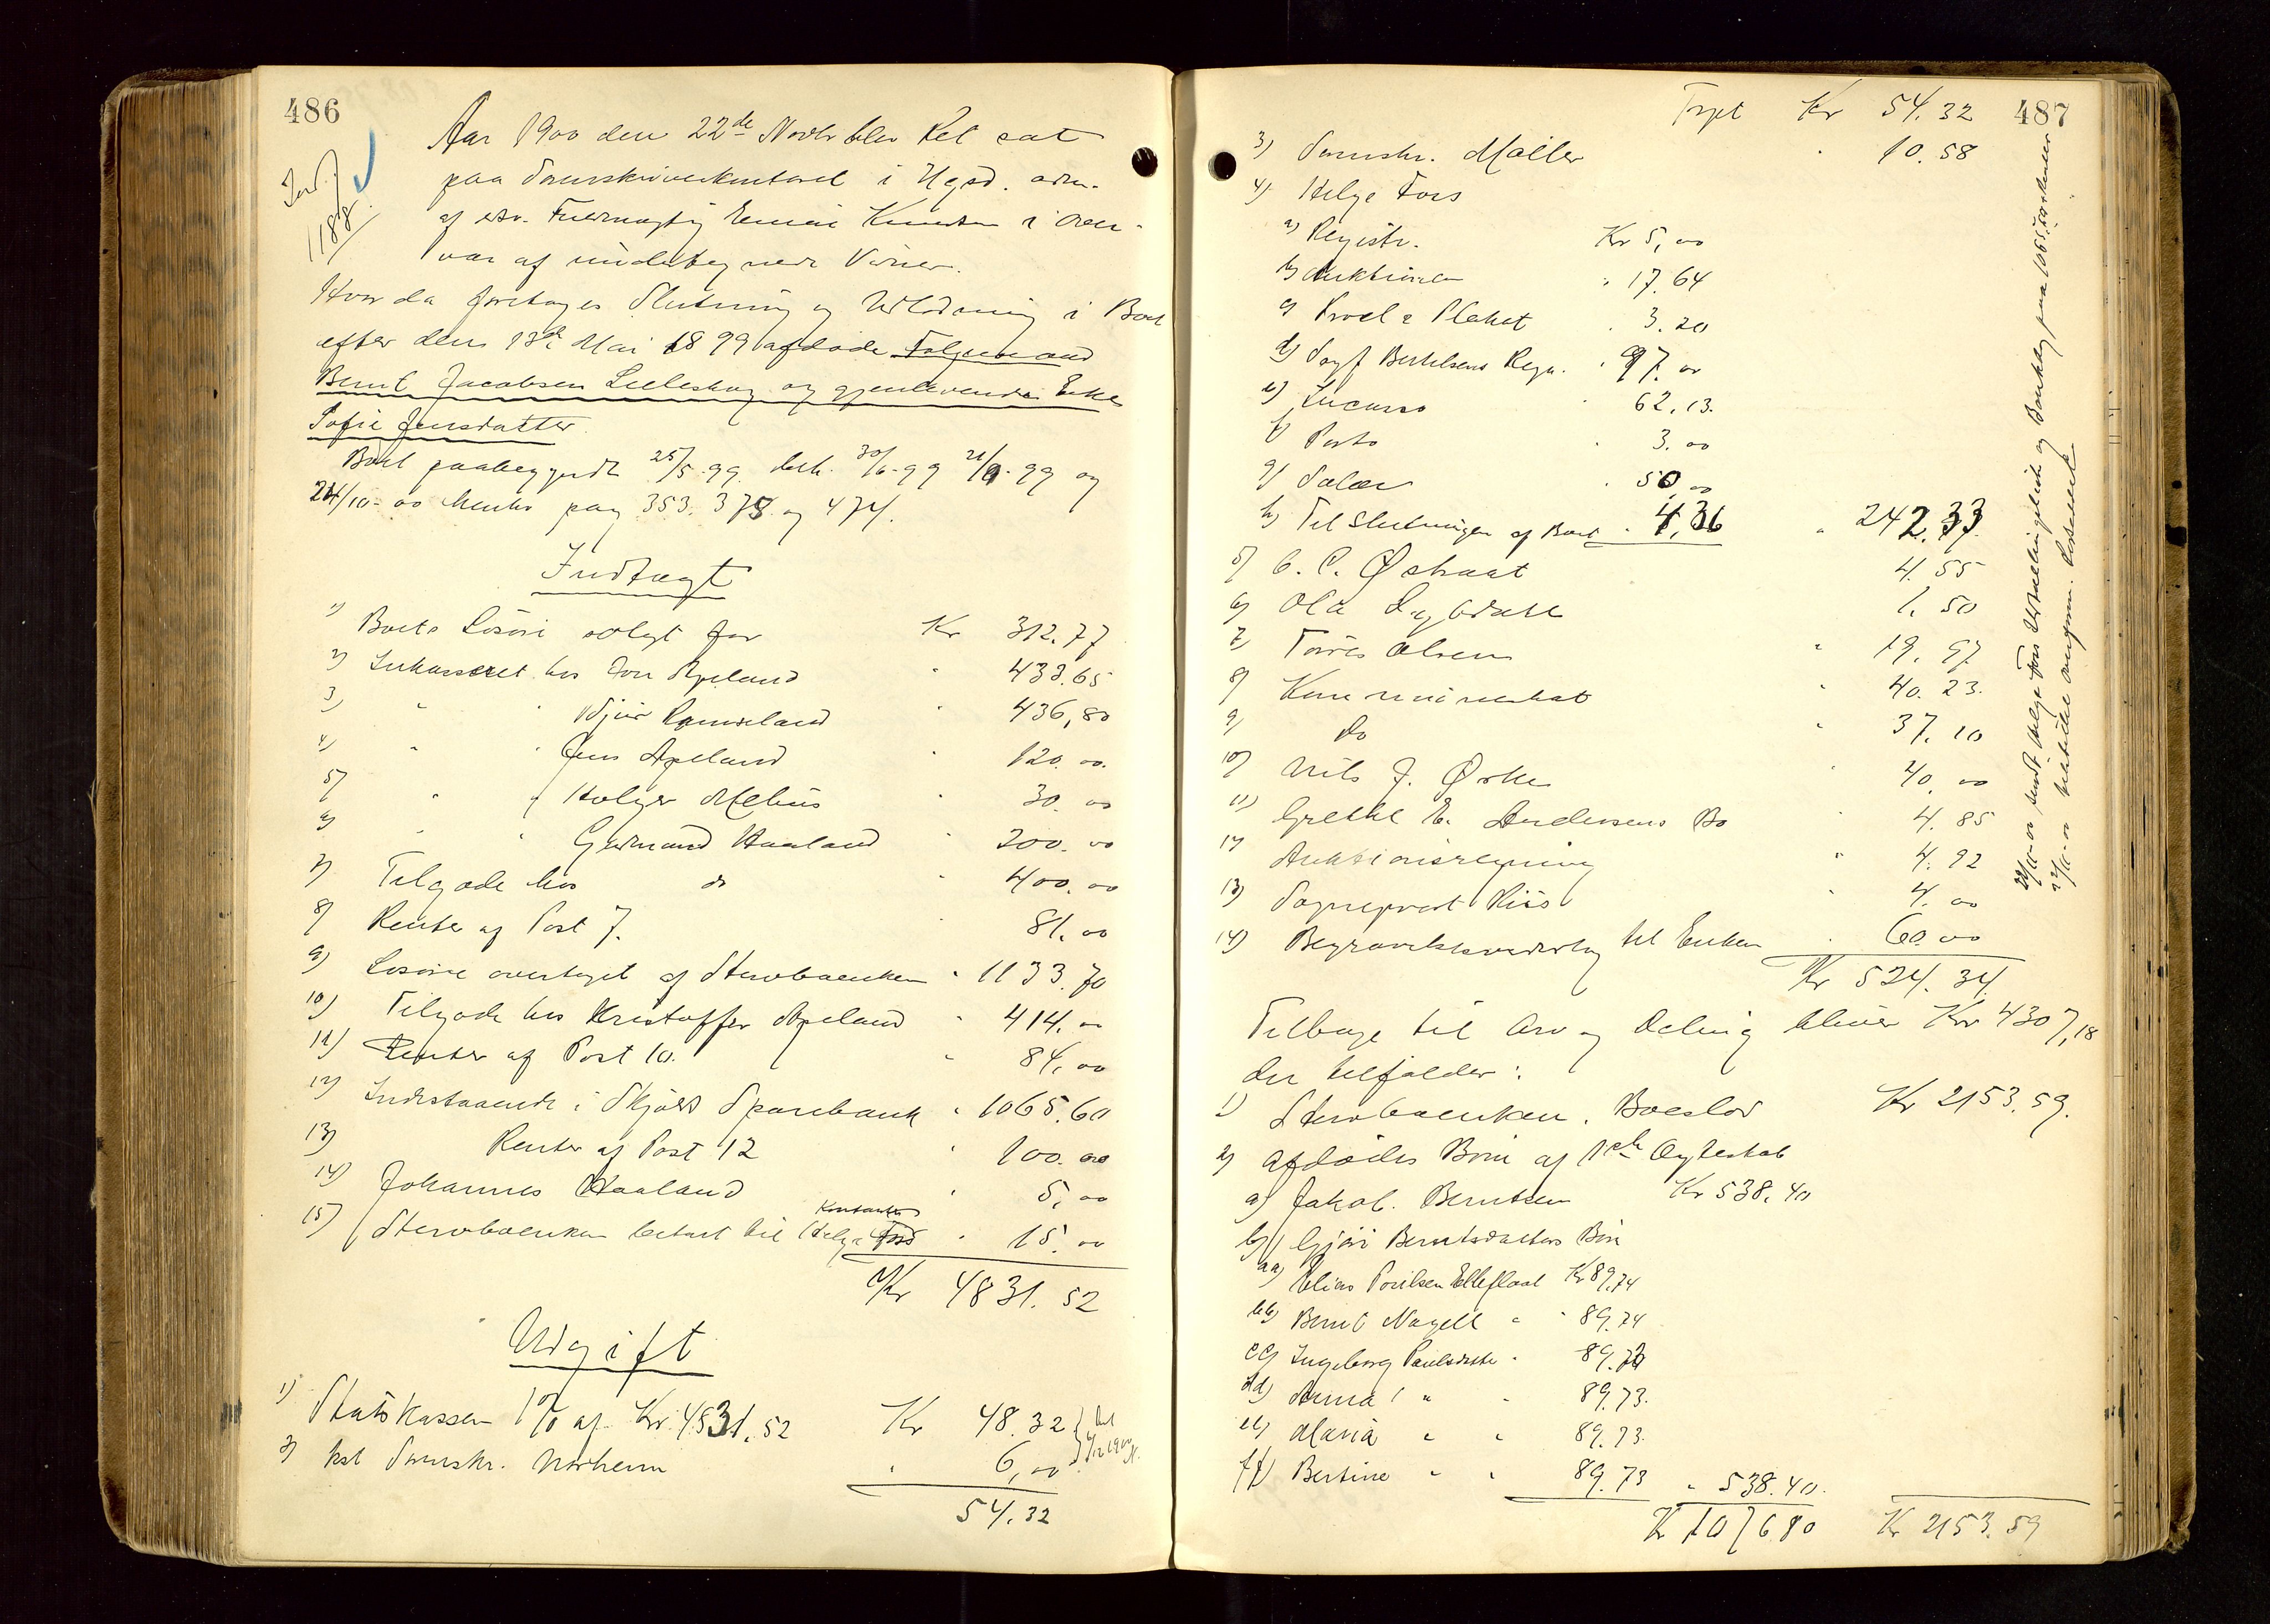 486
Jord. J
1188
Aar 1900 den 22de Novbr blev Ret sat
paa Sorenskriverkontoret i Hgsd. adm.
af edsv. Fuldmægtig Knudsen i Over-
vær af undertegnede Vidner.
Hvorda foretoges Slutning og Udlodning i Boet
efter den 13de Mai 1899 afdøde Følgemand
Bernt Jacobsen Lilleskog og gjenlevende Enke
Sofie Jensdatter.
Boet paabegyndt 25/5-99. beh. 30/6-99 21/9-99 og
24/10-00 herito pag 353. 378. og 474.
Indtægt
1) Boets Løsøre solgt for Kr 312.77
2) Inkasseret hos Jon Apeland " 433.65
3) " " Ramseland " 436,80
4) " " Jens Apeland " 120.00.
5) " " Holger Mehus " 30.00
6) " " Gudmund Haaland " 200.00
7) Tilgode hos do " 400.00
8) Renter af Post 7. 81.00
9) Løsøre overtaget af Stervboenken " 1133.70
10) Tilgode hos Kristoffer Apeland " 414.00
11) Renter af Post 10. " 84,00
12) Indestaaende i Skjold Sparebank " 1065.60
13) Renter af Post 12 " 100.00
14) Johannes Haaland " 5,00
15) Stervboenken betalt til Helge Foss Kontanter " 15.00
Kr 4831.52
Udgift
1) Statskassen 1% af Kr. 4831.52 Kr 48.32
2) kst Sorenskr. Norheim " 6,00
54.32
487
Trpt Kr 54.32
3) Sorenskr. Møller " 10.58
4) Helge Foss
a) Registr. Kr 5,00
b) Auktionen " 17.64
c) Procl & Plakat " 3.20
d) Sagf Bertelsens Regn. " 97.00
e) Incasso " 62.13.
f) Porto " 3.00
g) Salær " 50,00
h) Til Slutningen af Boet " 4,36 " 242.33
5) C. C. Østraat 4.55
6) Ola Lybdahl 1.50
7) Tørres Olsen " 19.97
8) Kommuneskat " 40.23.
9) do " 37.10
10) Nils J. Ørke " 40,00
11) Grethe E. Andersens Bo " 4.85
12) Auktionsregning " 4.92
13) Sogneprest Riis " 4.00
14) Begravelsesudlæg til Enken " 60.00
Kr 524.34.
Tilbage til Arv og Deling bliver Kr 4307,18
der tilfalder:
1) Stervboenken. Boeslod Kr 2153.59.
2) Afdødes Børn af 1ste Ægteskab
a) Jakob Berntsen Kr 538.40
b) Gjøri Berntsdatters Børn
aa) Elias Poulsen Kr 89.74
bb) Bernt Nagell " " 89.74
cc) Ingeborg Paulsdatter " 89.73
dd) Anna " " 89.73.
ee) Maria " " 89.73.
ff) Bertine " " 89.73 " 538.40.
Kr 1076 80 Kr 2153.59